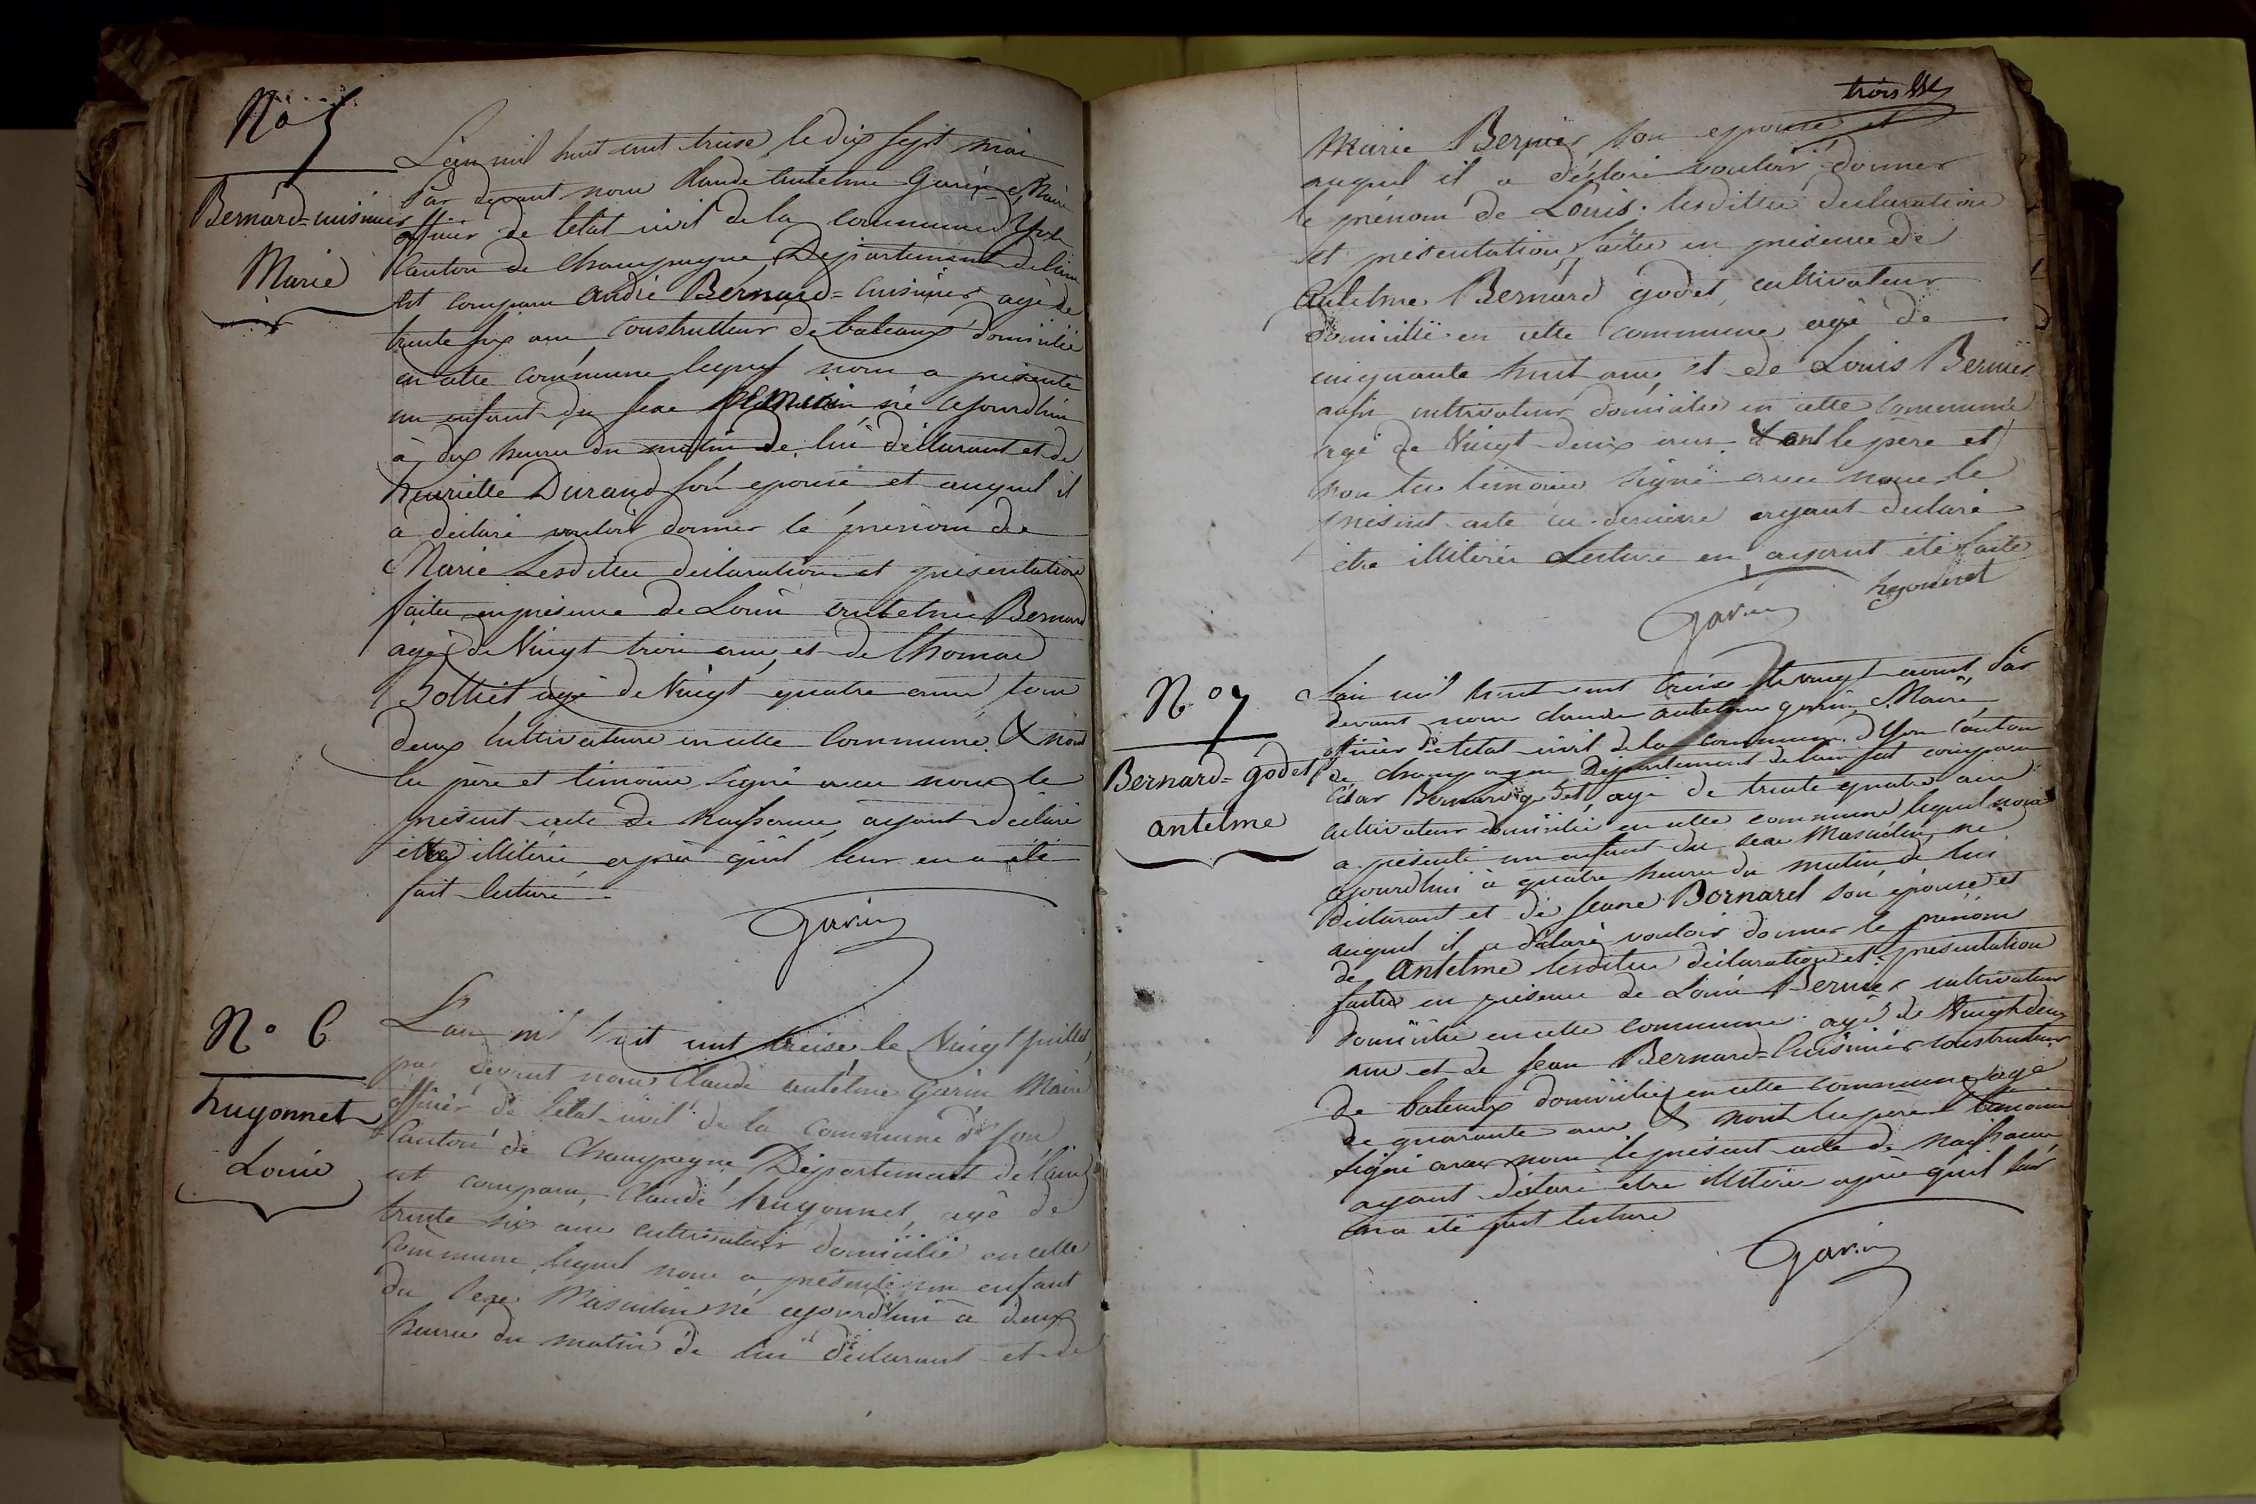 No 5
Bernard=cuisinier
Marie
L'an mil huit cent treise le dix sept mai
Par devant nous Claude antelme Garin Maire
officier de l'etat civil de la commune d'yon
Canton de Champagne Département de l'ain
est comparu andré Bernard=Cuisinier agé de
trente six ans constructeur de bateaux domicilié
en cette commune lequel nous a présenté
un enfant du sexe feminin né cejourdhui
à dix heures du matin de lui déclarant et de
henriette Durand son epouse et auquel il
a déclaré vouloir donner le prénom de
Marie Lesdites déclaration et présentation
faites en présence de Louis antelme Bernard
agé de Vingt trois ans et de Thomas
Vingt quatre ans tous
deux Cultivateurs en cette Commune. & n'ont
les père et témoins signé avec nous le
présent acte de Naissance ayant déclaré
être illitérés après qu'il leur en a été
fait lecture.
Garin
N° 6
hugonnet
Louis
L'an mil huit cent treise le Vingt juillet
par devant nous Claude antelme Garin Maire
officier de l'etat civil de la Commune d'yon
Canton de Champagne Département de l'ain
est comparu, Claude hugonnet, agé de
trente six ans cultivateur domicilié en cette
Commune lequel nous a présenté un enfant
du Sexe Masculin né cejourdhui à deux
heures du matin de lui déclarant et de
trois
Marie Bernier son epouse et
auquel il a déclaré vouloir donner
le prénom de Louis. lesdites declaration
et présentation faites en présence de
antelme Bernard godet, cultivateur
domicilié en cette commune agé de
cinquante huit ans et de Louis Bernier
aussi cultivateur domicilié en cette Commune
agé de Vingt deux ans. & ont le père et
non les témoins signé avec nous le
présent acte ces derniers ayant déclaré
etre illitérés Lecture en ayant été faite
Garin hugonnet
N° 7
Bernard=godet
antelme
L'an mil huit cent treise le vingt aoust Par
devant nous claude antelme garin Maire
officier de l'etat civil de la commune d'yon canton
de champagne Département de l'ain fut comparu
César Bernard godet agé de trente quatre ans
cultivateur domicilié en cette commune lequel nous
a présenté un enfant du sexe Masculin né
cejourdhui à quatre heures du matin de lui
déclarant et de Jeane Bornarel son épouse et
auquel il a déclaré vouloir donner le prénom
de antelme lesdites déclaration et présentation
faites en présence de Louis Bernier cultivateur
domicilié en cette commune agé de Vingt deux
ans et de Jean Bernard=Cuisinier constructeur
de bateaux domicilié en cette commune agé
de quarante ans & n'ont les père et témoins
signé avec nous le présent acte de Naissance
ayant déclaré etre illitérés après qu'il leur
en a été fait lecture
Garin